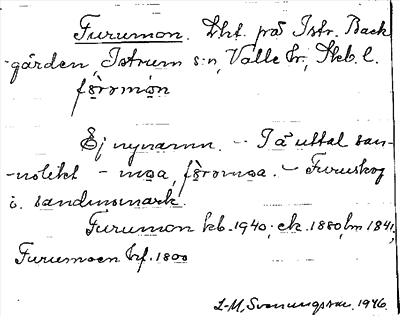 Furumon. Lht. på Istr. Back-
gården, Istrum s:n, Valle hr, Skb. l.
fòromòn
Ej nynamn. – I ä uttal san-
nolikt – moa, fòromoa. – Furuskog
i sandmomark.
Furumon kb. 1940; ek. 1880, lm 1841,
Furumoen krf. 1800
L-M, Svenungsson. 1946.